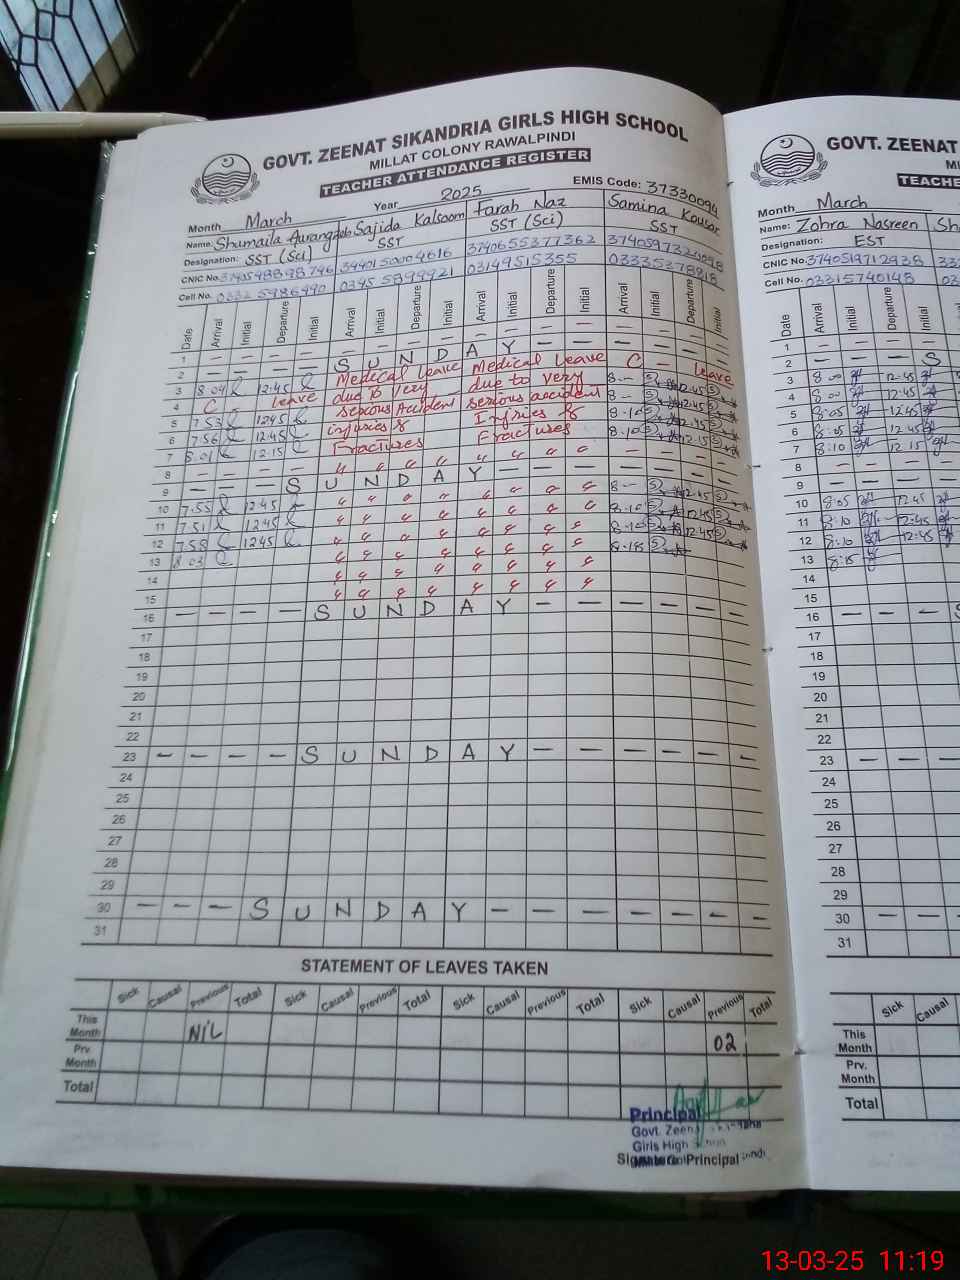 GOVT. ZEENAT SIKANDRIA GIRLS HIGH SCHOOL
MILLAT COLONY RAWALPINDI
TEACHER ATTENDANCE REGISTER
EMIS Code: 37330094
Month March Year 2025
Name: Shumaila Aurangzeb Sajida Kalsoom Farah Naz Samina Kousar
Designation: SST (Sci) SST SST (Sci) SST
CNIC No. 3740655377362
Cell No. 03149515355
Date Arrival Initial Departure Initial Arrival Initial Departure Initial Arrival Initial Departure Initial Arrival Initial Departure Initial
1 — — — —
2 — — — — S U N D A Y — — — — —
3 8.04 12:45 Medical leave Medical leave C — leave
4 C — leave due to very due to very 8 — 12.45
5 7.53 1245 serious Accident serious accident 8 — 12.45
6 7.56 12:45 injuries & Injries & 8.10 12.45
7 8.01 12.15 Fractures Fractures 8.10 12.15
8 — — — —
9 — — — S U N D A Y — — — — —
10 7.55 1245 8 — 12.45
11 7.51 1245 8.10 12.45
12 7.58 1245 8.10 12.45
13 8.03 8.15
14
15
16 — — — — S U N D A Y — — — — — —
17
18
19
20
21
22
23 — — — — S U N D A Y — — — — — —
24
25
26
27
28
29
30 — — — S U N D A Y — — — — — — —
31
STATEMENT OF LEAVES TAKEN
Sick Causal Previous Total Sick Causal Previous Total Sick Causal Previous Total Sick Causal Previous Total
This Month NIL 02
Prv Month
Total
Principal
Govt. Zeen
Girls High
Principal
GOVT. ZEENAT
TEACHE
Month March
Name: Zohra Nasreen Sh
Designation: EST
CNIC No. 3740519712938 33
Cell No. 03315740148 03
Date Arrival Initial Departure Initial
1 — — — —
2 — — — S
3 8.00 12.45
4 8.00 12.45
5 8:05 12.45
6 8:05 12.45
7 8:10 12.15
8 — — — —
9 — — — —
10 8.05 12.45
11 8:10 12:45
12 8:10 12:45
13 8:15
14
15
16 — — — —
17
18
19
20
21
22
23 — — —
24
25
26
27
28
29
30 — — —
31
Sick Causal
This Month
Prv. Month
Total
13-03-25 11:19